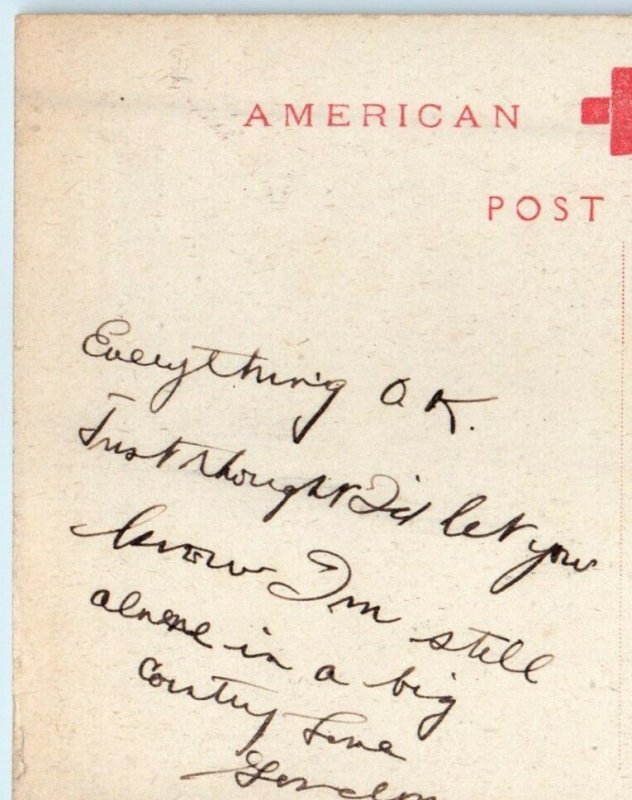 AMERICAN
POST
Everything O.K.
Just thought I'd let you
know I'm still
alone in a big
country Love
Gordon